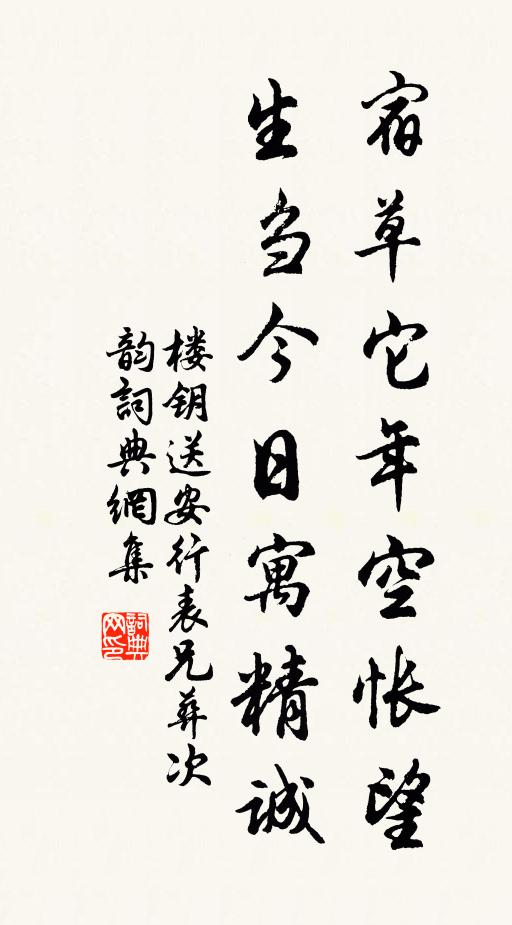 宿草它年空怅望
生刍今日寓精诚
楼钥送安行表兄葬次
韵詞典網集
詞典网印